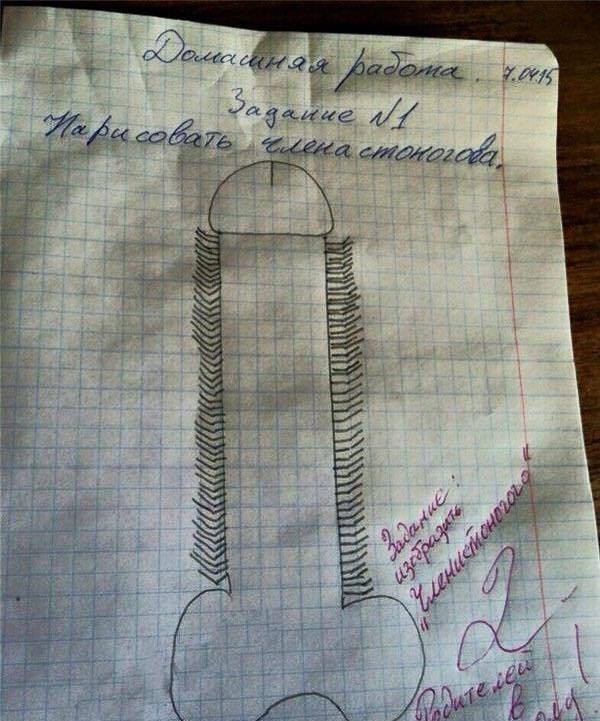 Домашняя работа. 7.04.15
Задание №1
Нарисовать члена стоногова.
Задание:
изобразить
"Членистоногого"
2
Родителей
в